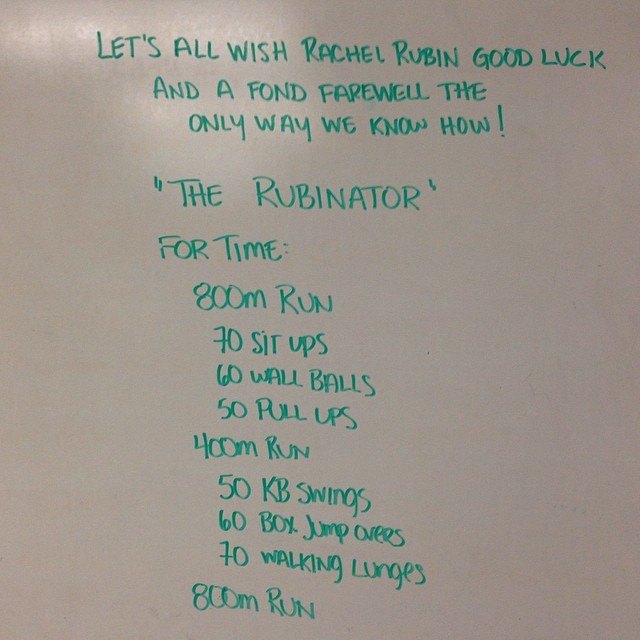 LET'S ALL WISH RACHEL RUBIN GOOD LUCK
AND A FOND FAREWELL THE
ONLY WAY WE KNOW HOW!
"THE RUBINATOR"
FOR TIME:
800m RUN
70 SIT UPS
60 WALL BALLS
50 PULL UPS
400m RUN
50 KB SWINGS
60 BOX JUMP OVERS
70 WALKING LUNGES
800m RUN